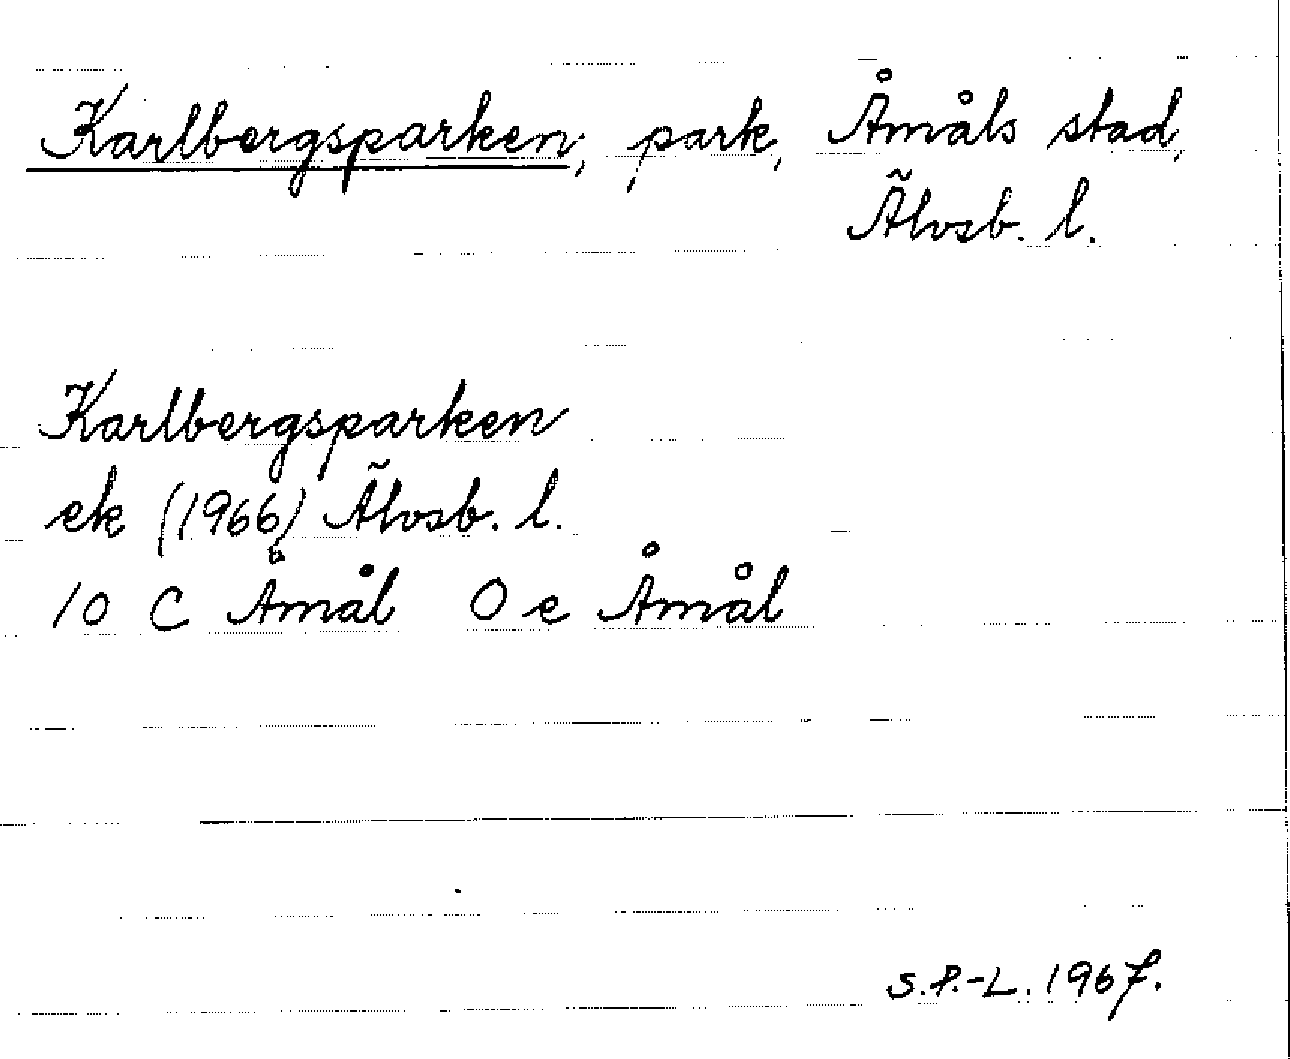 Karlbergsparken, park, Åmåls stad,
Älvsb. l.
Karlbergsparken
ek (1966) Älvsb. l.
10 C Åmål 0 e Åmål
S.P.-L. 1967.